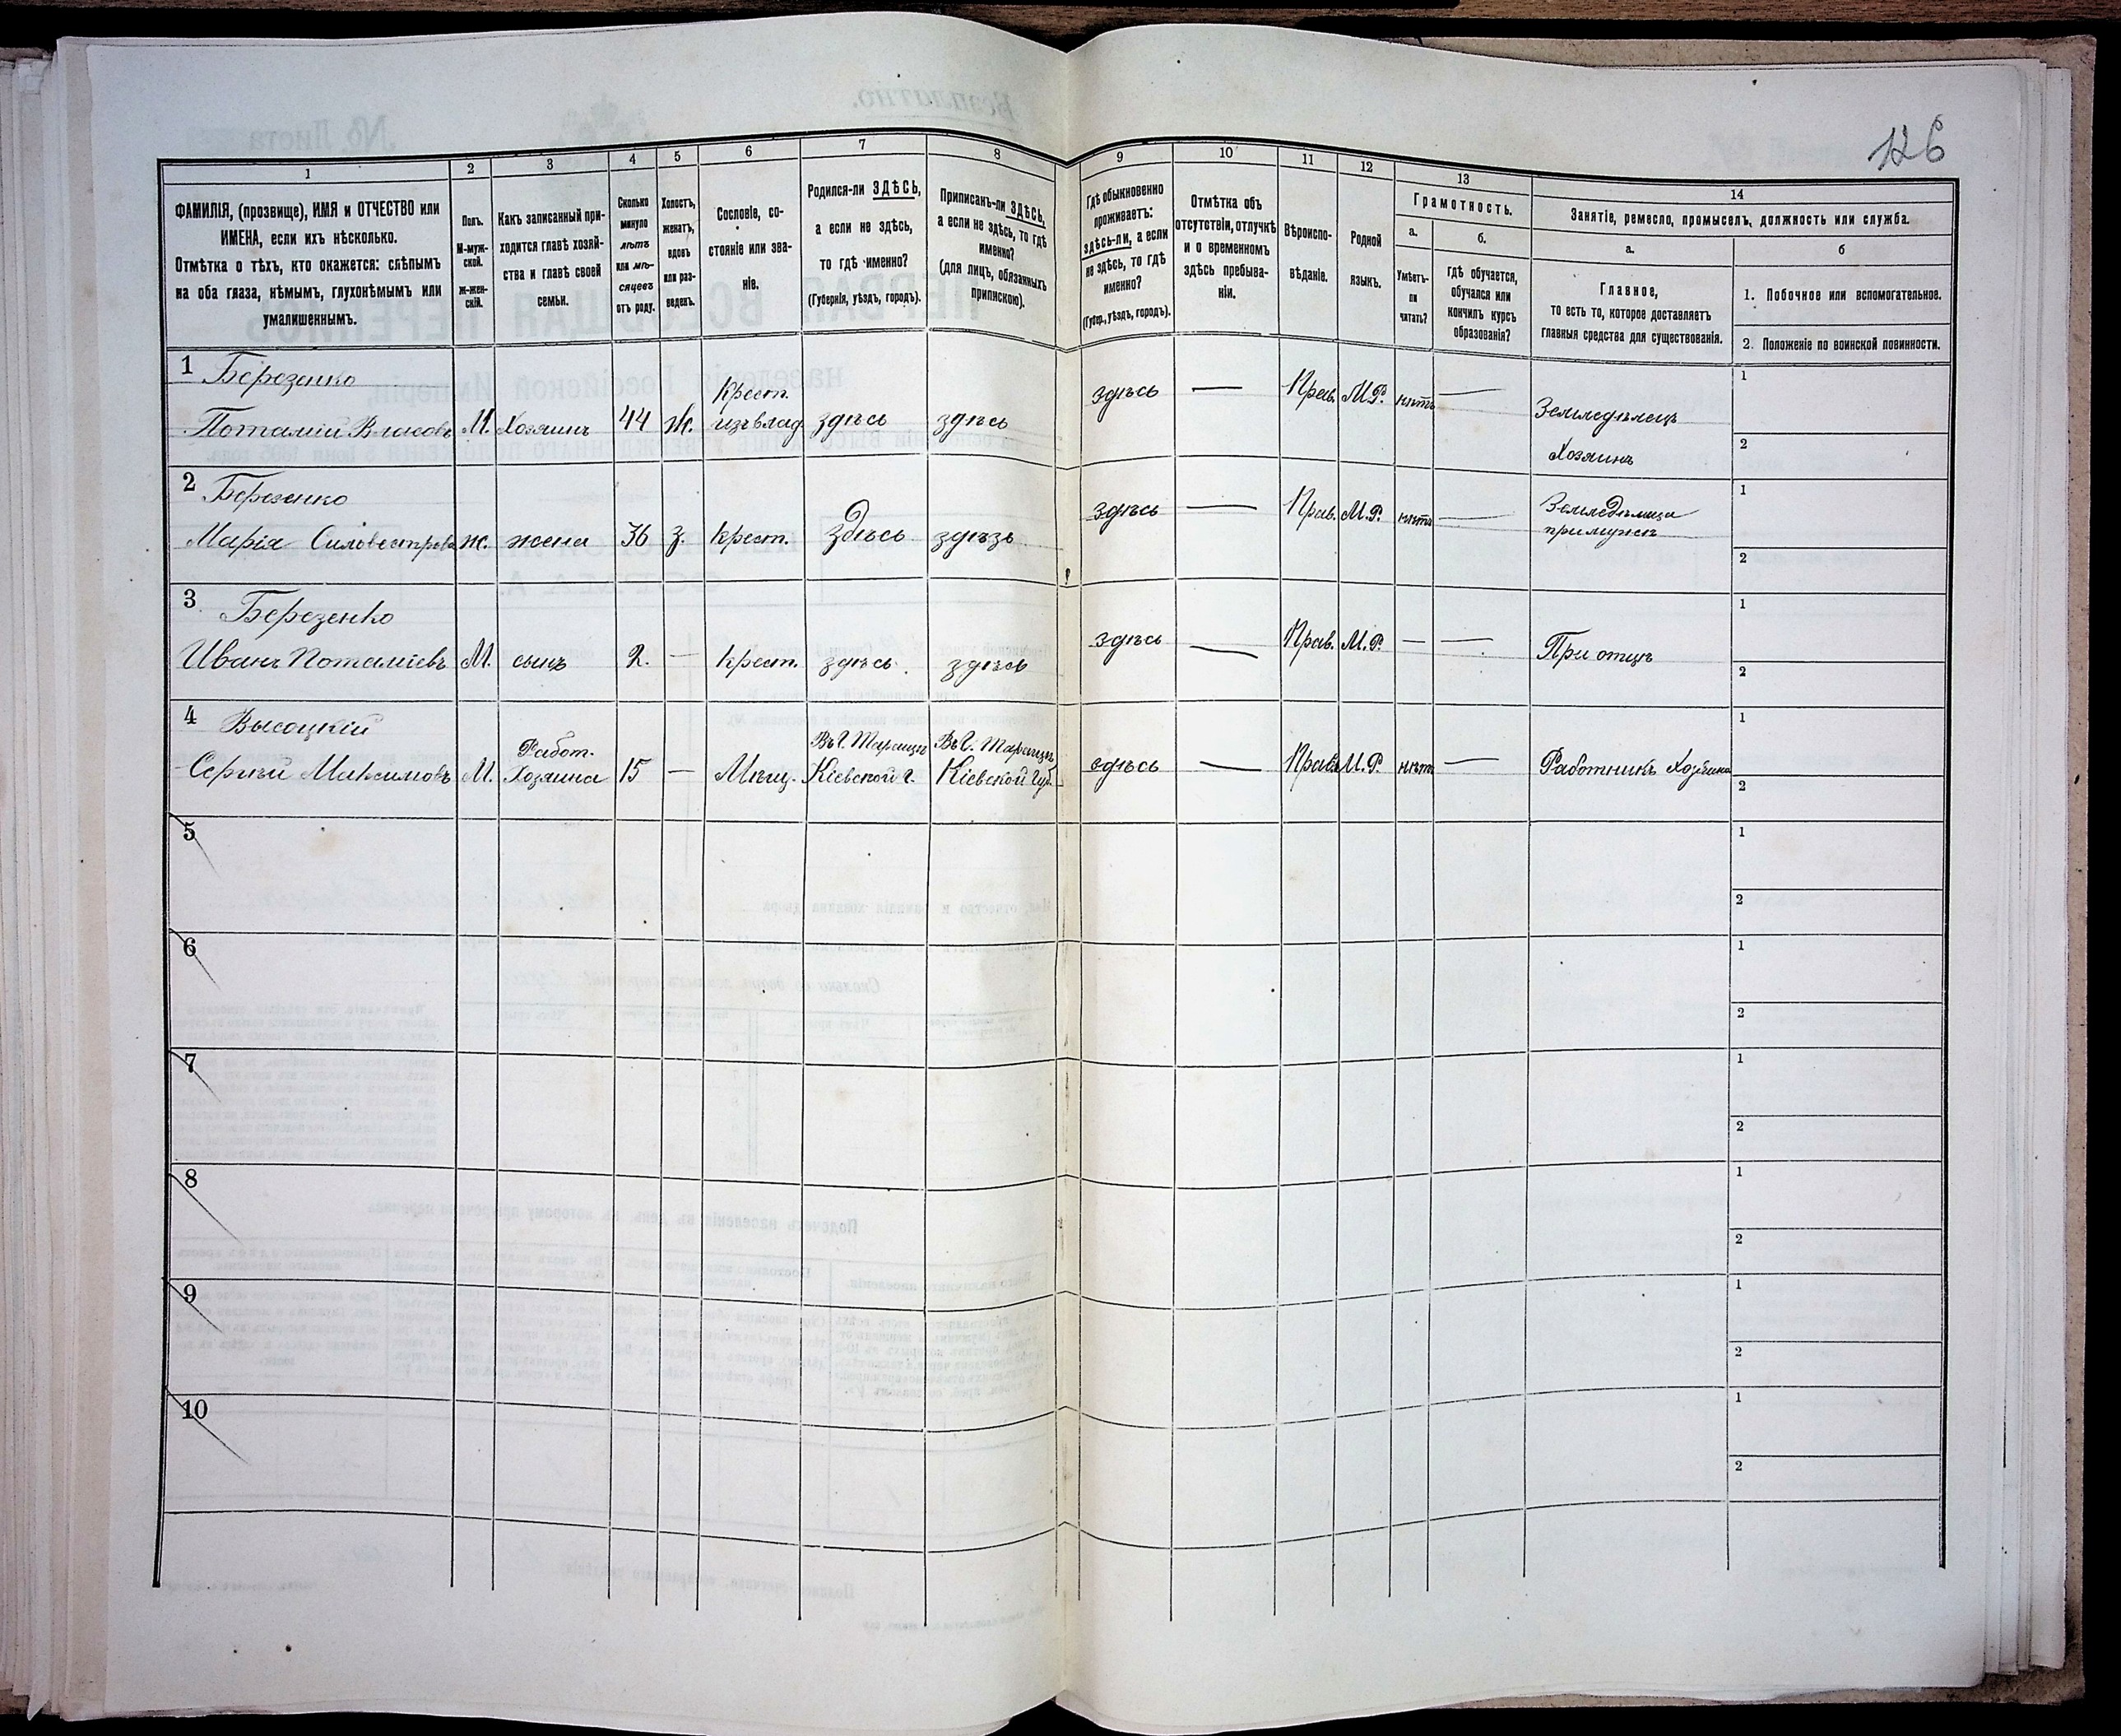 126
1
2
3
4
5
6
7
8
9
10
11
12
13
14
ФАМИЛІЯ, (прозвище), ИМЯ и ОТЧЕСТВО или
ИМЕНА, если ихъ нѣсколько.
Отмѣтка о тѣхъ, кто окажется: слѣпымъ
на оба глаза, нѣмымъ, глухонѣмымъ или
умалишеннымъ.
Полъ.
М-муж-
ской.
Ж-жен-
скій.
Какъ записанный при-
ходится главѣ хозяй-
ства и главѣ своей
семьи.
Сколько
минуло
лѣтъ
или мѣ-
сяцевъ
отъ роду.
Холостъ,
женатъ,
вдовъ
или раз-
веденъ.
Сословіе, со-
стояніе или зва-
ніе.
Родился-ли ЗДѢСЬ,
а если не здѣсь,
то гдѣ именно?
(Губернія, уѣздъ, городъ).
Приписанъ-ли ЗДѢСЬ,
а если не здѣсь, то гдѣ
именно?
(для лицъ, обязанныхъ
припискою).
Гдѣ обыкновенно
проживаетъ:
здѣсь-ли, а если
не здѣсь, то гдѣ
именно?
(Губер., уѣздъ, городъ).
Отмѣтка объ
отсутствіи, отлучкѣ
и о временномъ
здѣсь пребыва-
ніи.
Вѣроиспо-
вѣданіе.
Родной
языкъ.
Грамотность.
а.
Умѣетъ-
ли
читать?
б.
гдѣ обучается,
обучался или
кончилъ курсъ
образованія?
Занятіе, ремесло, промыселъ, должность или служба.
а.
Главное,
то есть то, которое доставляетъ
главныя средства для существованія.
б
1. Побочное или вспомогательное.
2. Положеніе по воинской повинности.
1 Березенко
Потапій Власовъ М. Хозяинъ 44 Ж. Крест.
изъ влад. здѣсь здѣсь здѣсь — Прав. М.Р. нѣтъ — Земледѣлецъ
Хозяинъ
1
2
2 Березенко
Марія Силовестрова Ж. жена 36 З. Крест. здѣсь здѣзь здѣсь — Прав. М.Р. нѣтъ — Земледѣлица
при мужѣ
1
2
3 Березенко
Иванъ Потапіевъ М. сынъ 2. — Крест. здѣсь. здѣсь здѣсь — Прав. М.Р. — — При отцѣ
1
2
4 Высоцкій
Сергѣй Максимовъ М. Работ.
Хозяина 15 — Мѣщ. Въ Г. Таращѣ
Кіевской г. Въ Г. Таращѣ
Кіевской Губ. здѣсь — Прав. М.Р. нѣтъ — Работникъ Хозяина
1
2
5
1
2
6
1
2
7
1
2
8
1
2
9
1
2
10
1
2